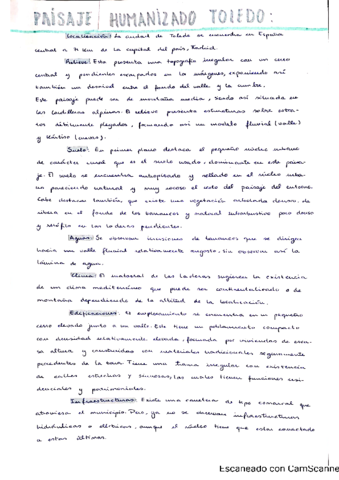 PAISAJE HUMANIZADO TOLEDO:
Localización: La ciudad de Toledo se encuentra en España
central a 71 km de la capital del país, Madrid.
Relieve: Este presenta una topografía irregular con un cerro
central y pendientes escarpadas en los márgenes, exponiendo así
también un desnivel entre el fondo del valle y la cumbre.
Este paisaje puede ser de montaña media, siendo así situada en
las cordilleras alpinas. El relieve presenta estructuras sobre estra-
tos plegados, formando así un modelo fluvial (valle)
y
Suelo: En primer plano destaca el pequeño núcleo urbano
de carácter rural que es el suelo usado, dominante en este paisa-
je. El suelo se encuentra y en el núcleo urba-
no pareciendo natural y muy escaso el resto del paisaje del entorno.
Cabe destacar también, que existe una vegetación arbolada densa, de
ribera en el fondo de los barrancos y matorral arbustivo poco denso
y xerófilo en las laderas pendientes.
Aguas: Se observan incisiones de barrancos que se dirigen
hacia un valle fluvial relativamente angosto. Sin observar así la
lámina de agua.
Clima: El matorral de las laderas sugieren la existencia
de un clima mediterráneo que puede ser continentalizado o de
montaña dependiendo de la altitud de la localización.
Edificaciones: El emplazamiento se encuentra en un pequeño
cerro elevado junto a un valle. Este tiene un poblamiento compacto
con densidad relativamente elevada, formada por viviendas de esca-
sa altura y construidas con materiales tradicionales seguramente
procedentes de la zona. Tiene una trama irregular con existencia
de calles estrechas y sinuosas, las cuales tienen funciones resi-
denciales y patrimoniales.
Infraestructuras: Existe una carretera de tipo comarcal que
atraviesa el municipio. Pero, ya no se observan infraestructuras
hidráulicas o eléctricas, aunque el núcleo tiene que estar conectado
a estas últimas.
Escaneado con CamScanne